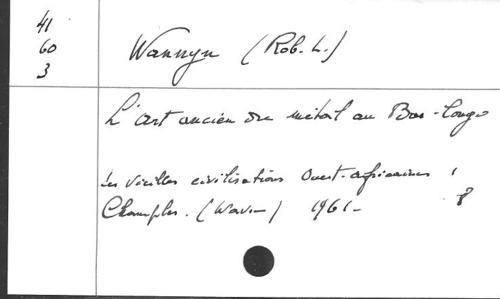 41
60
3
Wannyn (Rob. L.)
L'art ancien du métal au Bas-Congo
Les vieilles civilisations Ouest-africaines,
Champles. (Wavre) 1961-
8